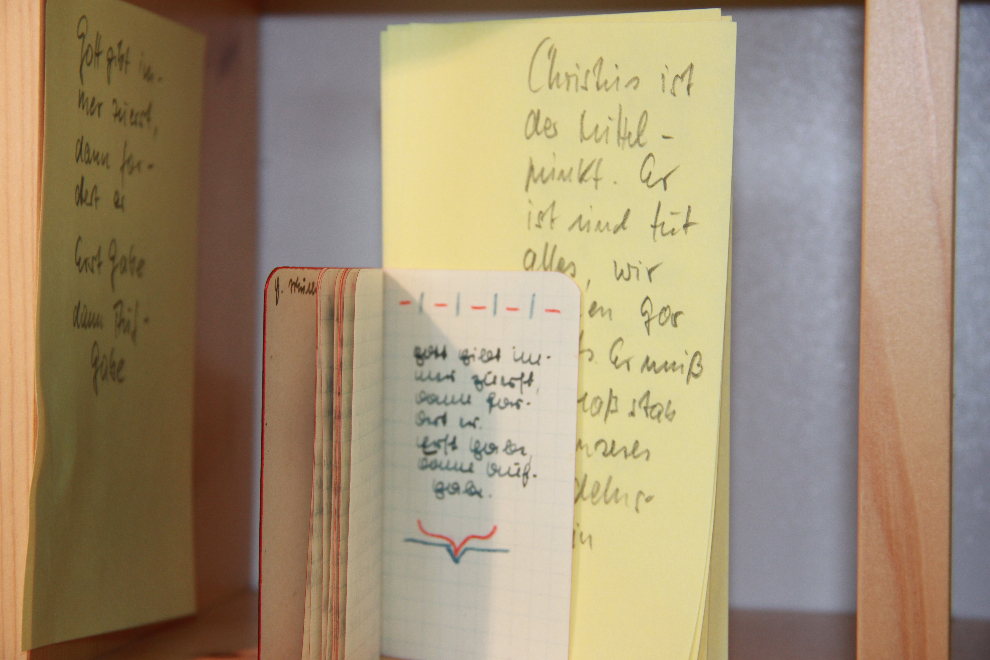 Gott gibt im-
mer zuerst,
dann for-
dert er
Erst Gabe
dann Auf-
gabe
Christus ist
der Mittel-
punkt. Er
ist und tut
alles, wir
en gar
s. Er muß
stab
unseres
delns-
in
gott gibt im-
mer zuerst,
dann for-
dert er.
Erst gabe,
dann auf-
gabe.